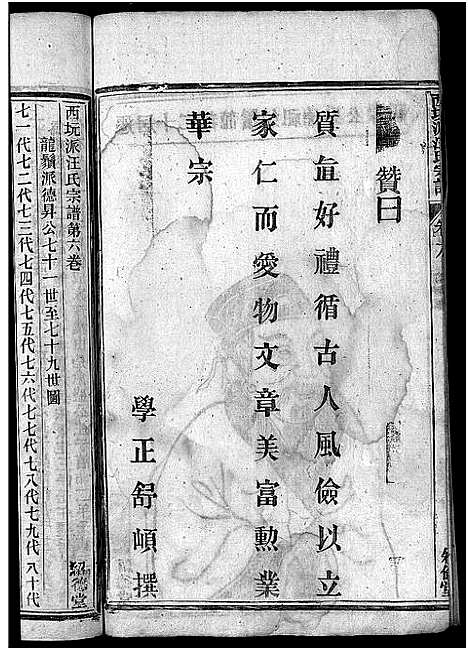 贊曰
質直好禮循古人風儉以立
家仁而愛物文章美富勲業
華宗
學正舒頔撰
西玩派汪氏宗譜第六卷
龍鬚派德昇公七十一世至七十九世圖
七一代七二代七三代七四代七五代七六代七七代七八代七九代八十代